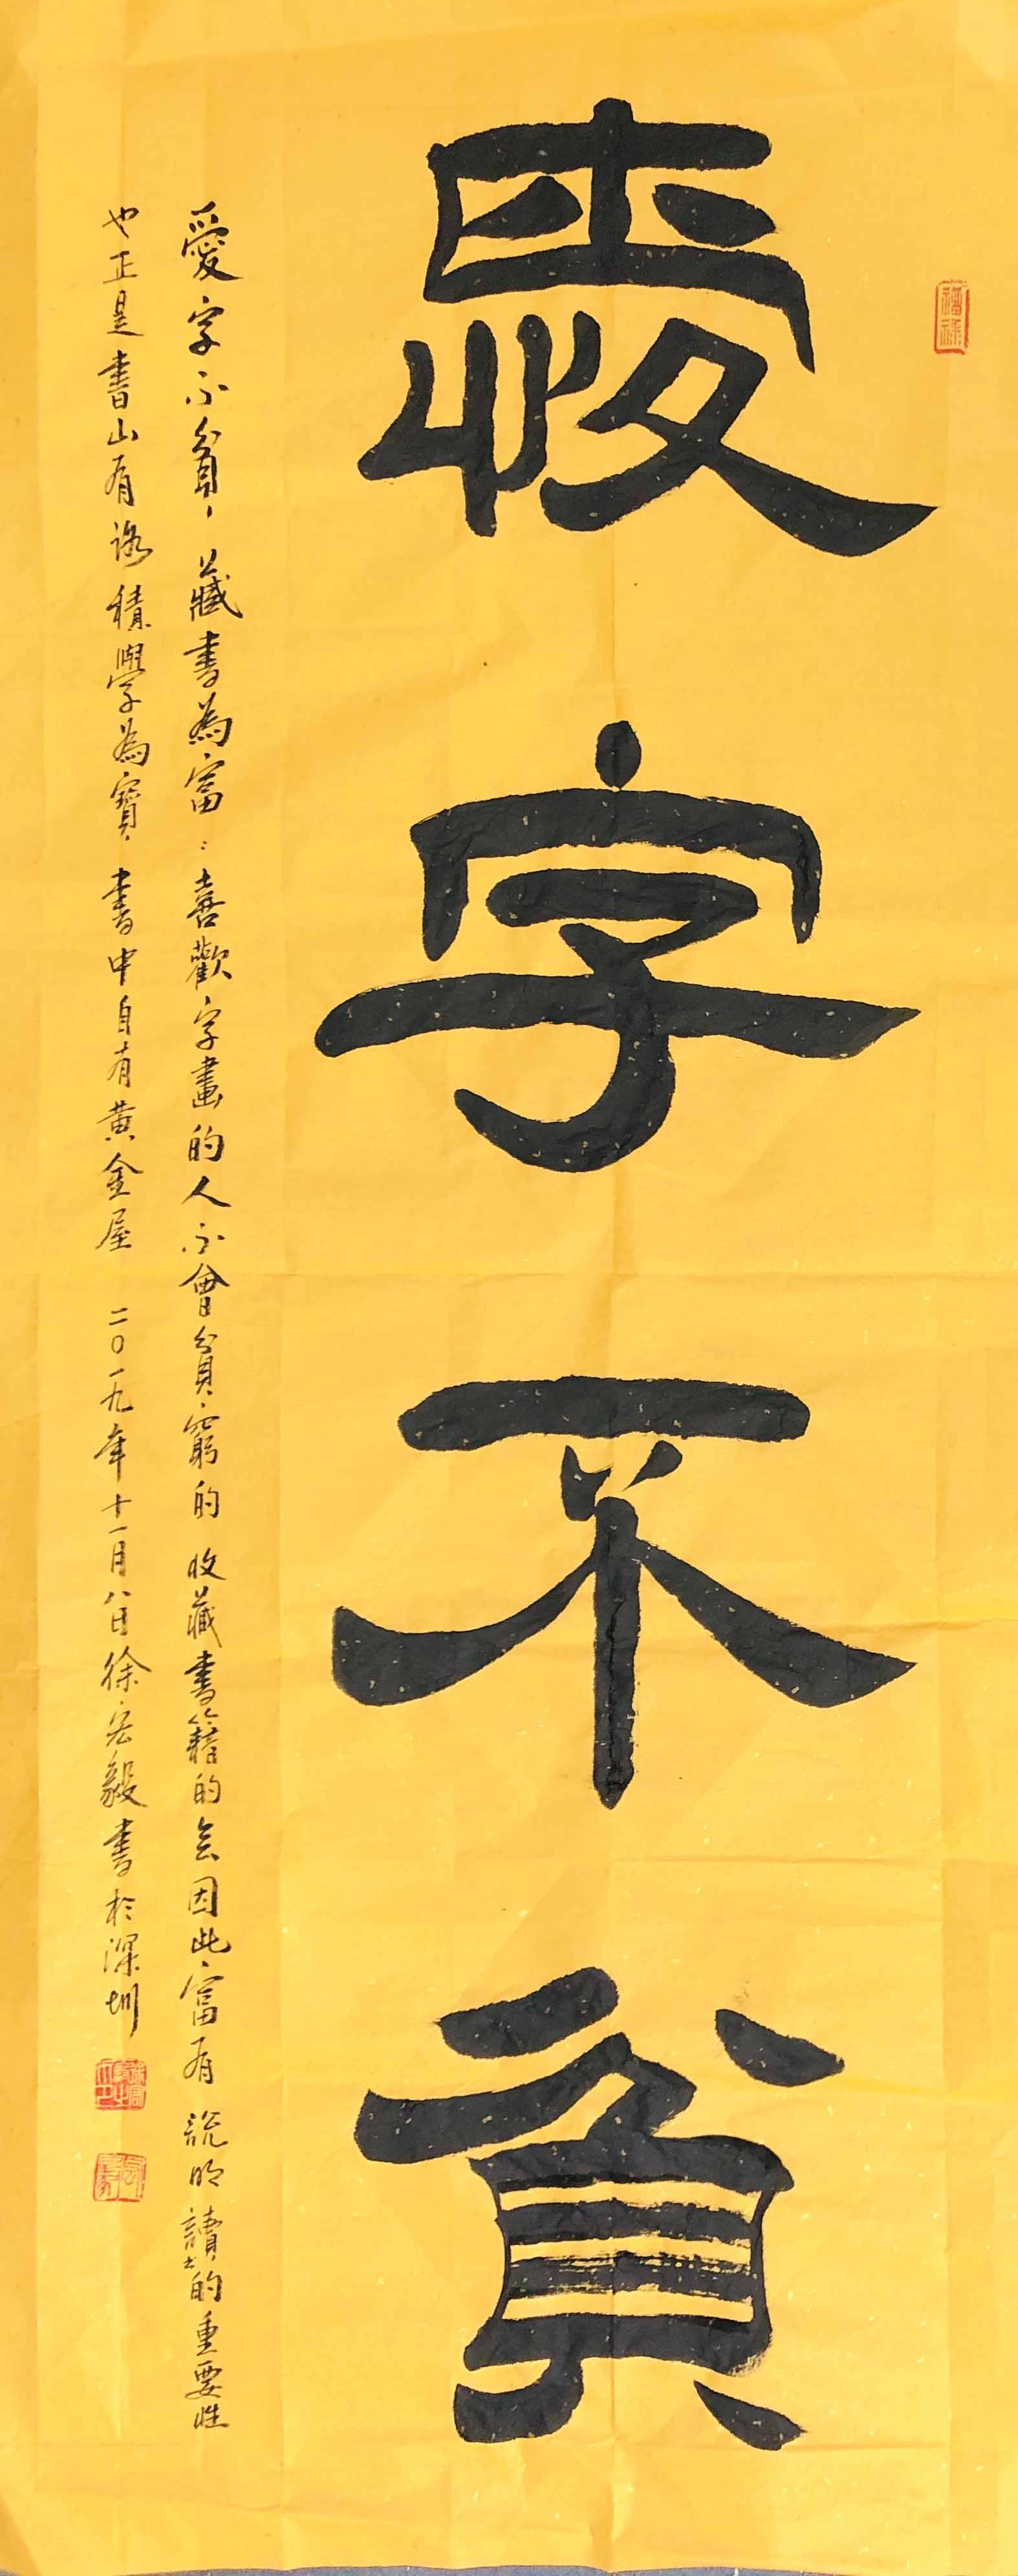 福祿
愛字不貧
愛字不貧，藏書為富：喜歡字畫的人不會貧窮的 收藏書籍的会因此富有 說明讀书的重要性
也正是書山有路積學為寶 書中自有黄金屋 二〇一九年十一月八日徐宏毅書於深圳